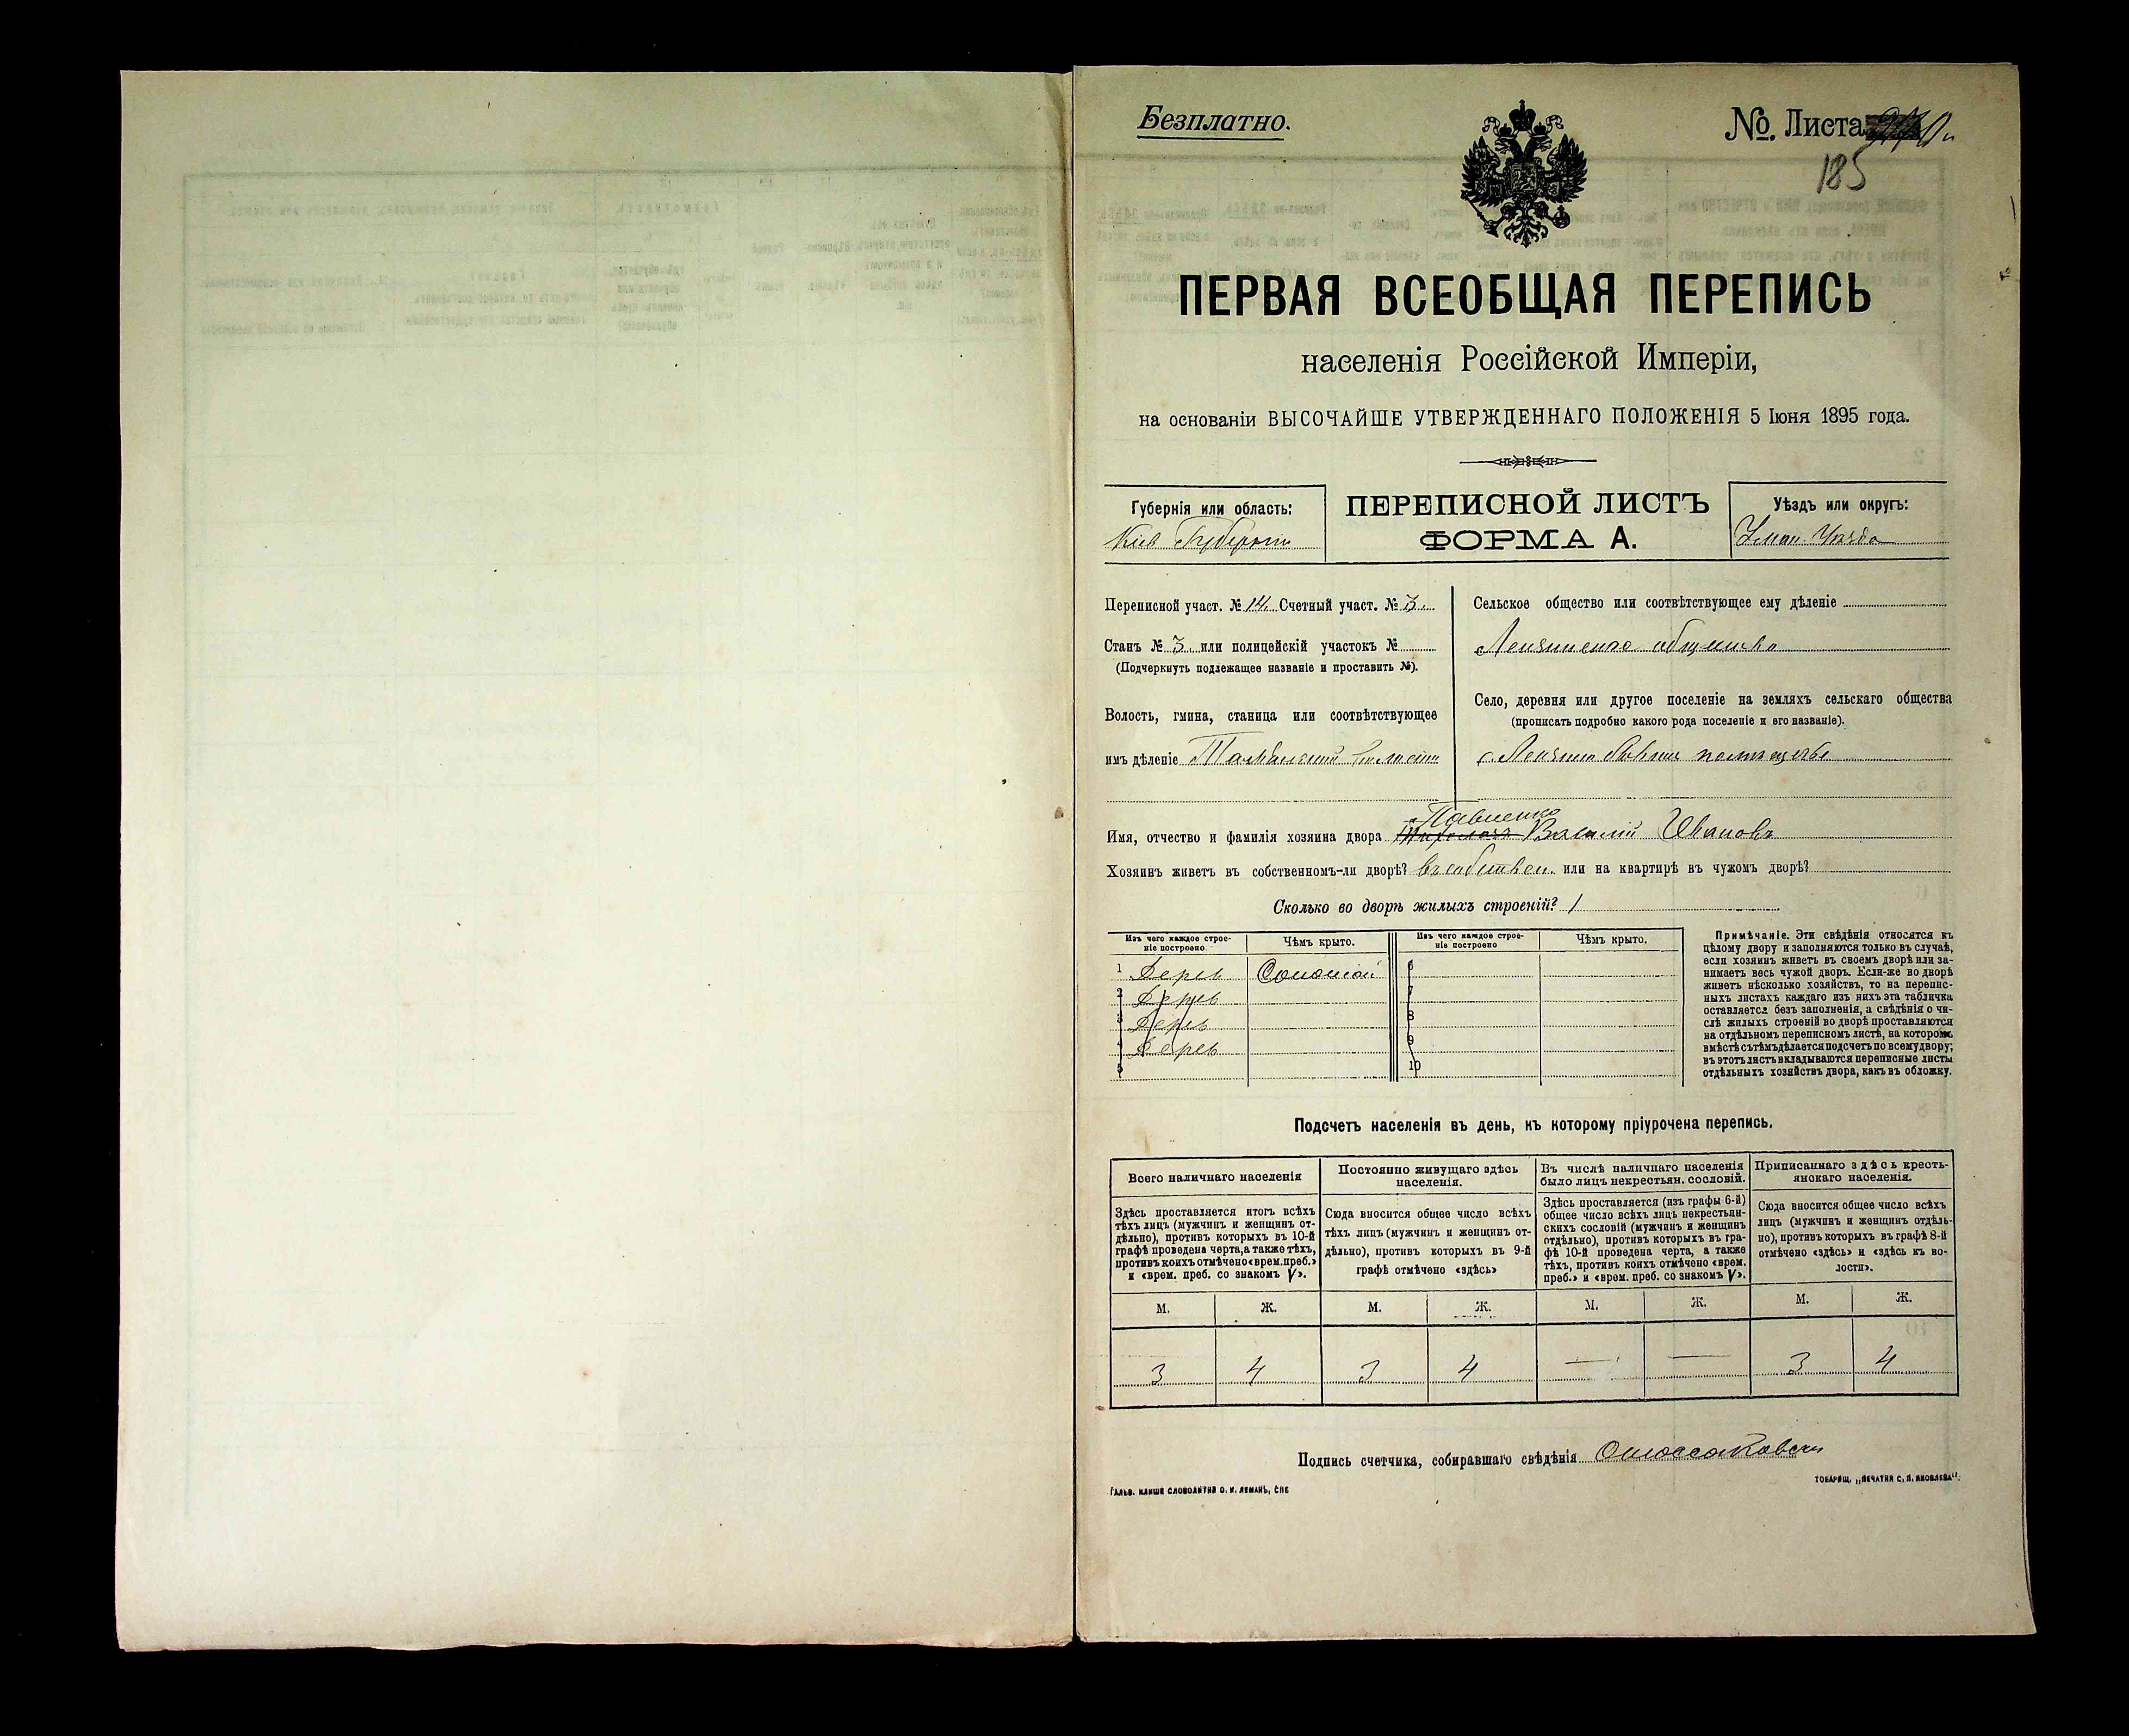 Безплатно.
№. Листа
185
ПЕРВАЯ ВСЕОБЩАЯ ПЕРЕПИСЬ
населенія Россійской Имперіи,
на основаніи ВЫСОЧАЙШЕ УТВЕРЖДЕННАГО ПОЛОЖЕНІЯ 5 Іюня 1895 года.
Губернія или область:
Кіев Губерніи
ПЕРЕПИСНОЙ ЛИСТЪ
ФОРМА А.
Уѣздъ или округъ:
Уман. Уѣзда
Переписной участ. № 14. Счетный участ. № 3.
Станъ № 3. или полицейскій участокъ №
(Подчеркнуть подлежащее названіе и проставить №).
Волость, гмина, станица или соотвѣтствующее
имъ дѣленіе
Сельское общество или соотвѣтствующее ему дѣленіе
общества
Село, деревня или другое поселеніе на земляхъ сельскаго общества
(прописать подробно какого рода поселеніе и его названіе).
Имя, отчество и фамилія хозяина двора Павленко Василій Ивановъ
Хозяинъ живетъ въ собственномъ-ли дворѣ? въ собствен. или на квартирѣ въ чужомъ дворѣ?
Сколько во дворѣ жилыхъ строеній? 1
Изъ чего каждое строе-
ніе построено.
Чѣмъ крыто.
Изъ чего каждое строе-
ніе построено
Чѣмъ крыто.
1 Дерев Соломой 6
2 Дерев 7
3 Дерев 8
4 Дерев 9
5 10
Примѣчаніе. Эти свѣдѣнія относятся къ
цѣлому двору и заполняются только въ случаѣ,
если хозяинъ живетъ въ своемъ дворѣ или за-
нимаетъ весь чужой дворъ. Если-же во дворѣ
живетъ нѣсколько хозяйствъ, то на перепис-
ныхъ листахъ каждаго изъ нихъ эта табличка
оставляется безъ заполненія, а свѣдѣнія о чи-
слѣ жилыхъ строеній во дворѣ проставляются
на отдѣльномъ переписномъ листѣ, на которомъ
вмѣстѣ съ тѣмъ дѣлается подсчетъ по всему двору;
въ этотъ листъ вкладываются переписные листы
отдѣльныхъ хозяйствъ двора, какъ въ обложку.
Подсчетъ населенія въ день, къ которому пріурочена перепись.
Всего наличнаго населенія
Здѣсь проставляется итогъ всѣхъ
тѣхъ лицъ (мужчинъ и женщинъ от-
дѣльно), противъ которыхъ въ 10-й
графѣ проведена черта, а также тѣхъ,
противъ коихъ отмѣчено «врем. преб.»
и «врем. преб. со знакомъ V».
Постоянно живущаго здѣсь
населенія.
Сюда вносится общее число всѣхъ
тѣхъ лицъ (мужчинъ и женщинъ от-
дѣльно), противъ которыхъ въ 9-й
графѣ отмѣчено «здѣсь»
Въ числѣ наличнаго населенія
было лицъ некрестьян. сословій.
Здѣсь проставляется (изъ графы 6-й)
общее число всѣхъ лицъ некрестьян-
скихъ сословій (мужчинъ и женщинъ
отдѣльно), противъ которыхъ въ гра-
фѣ 10-й проведена черта, а также
тѣхъ, противъ коихъ отмѣчено «врем.
преб.» и «врем. преб. со знакомъ V».
Приписаннаго здѣсь кресть-
янскаго населенія.
Сюда вносится общее число всѣхъ
лицъ (мужчинъ и женщинъ отдѣль-
но), противъ которыхъ въ графѣ 8-й
отмѣчено «здѣсь» и «здѣсь къ во-
лости».
М. Ж. М. Ж. М. Ж. М. Ж.
3 4 3 4 — — 3 4
Подпись счетчика, собиравшаго свѣдѣнія
ГАЛЬВ. КЛИШЕ СЛОВОЛИТНИ О. И. ЛЕМАНЪ, СПБ
ТОВАРИЩ. „ПЕЧАТНЯ С. П. ЯКОВЛЕВА".